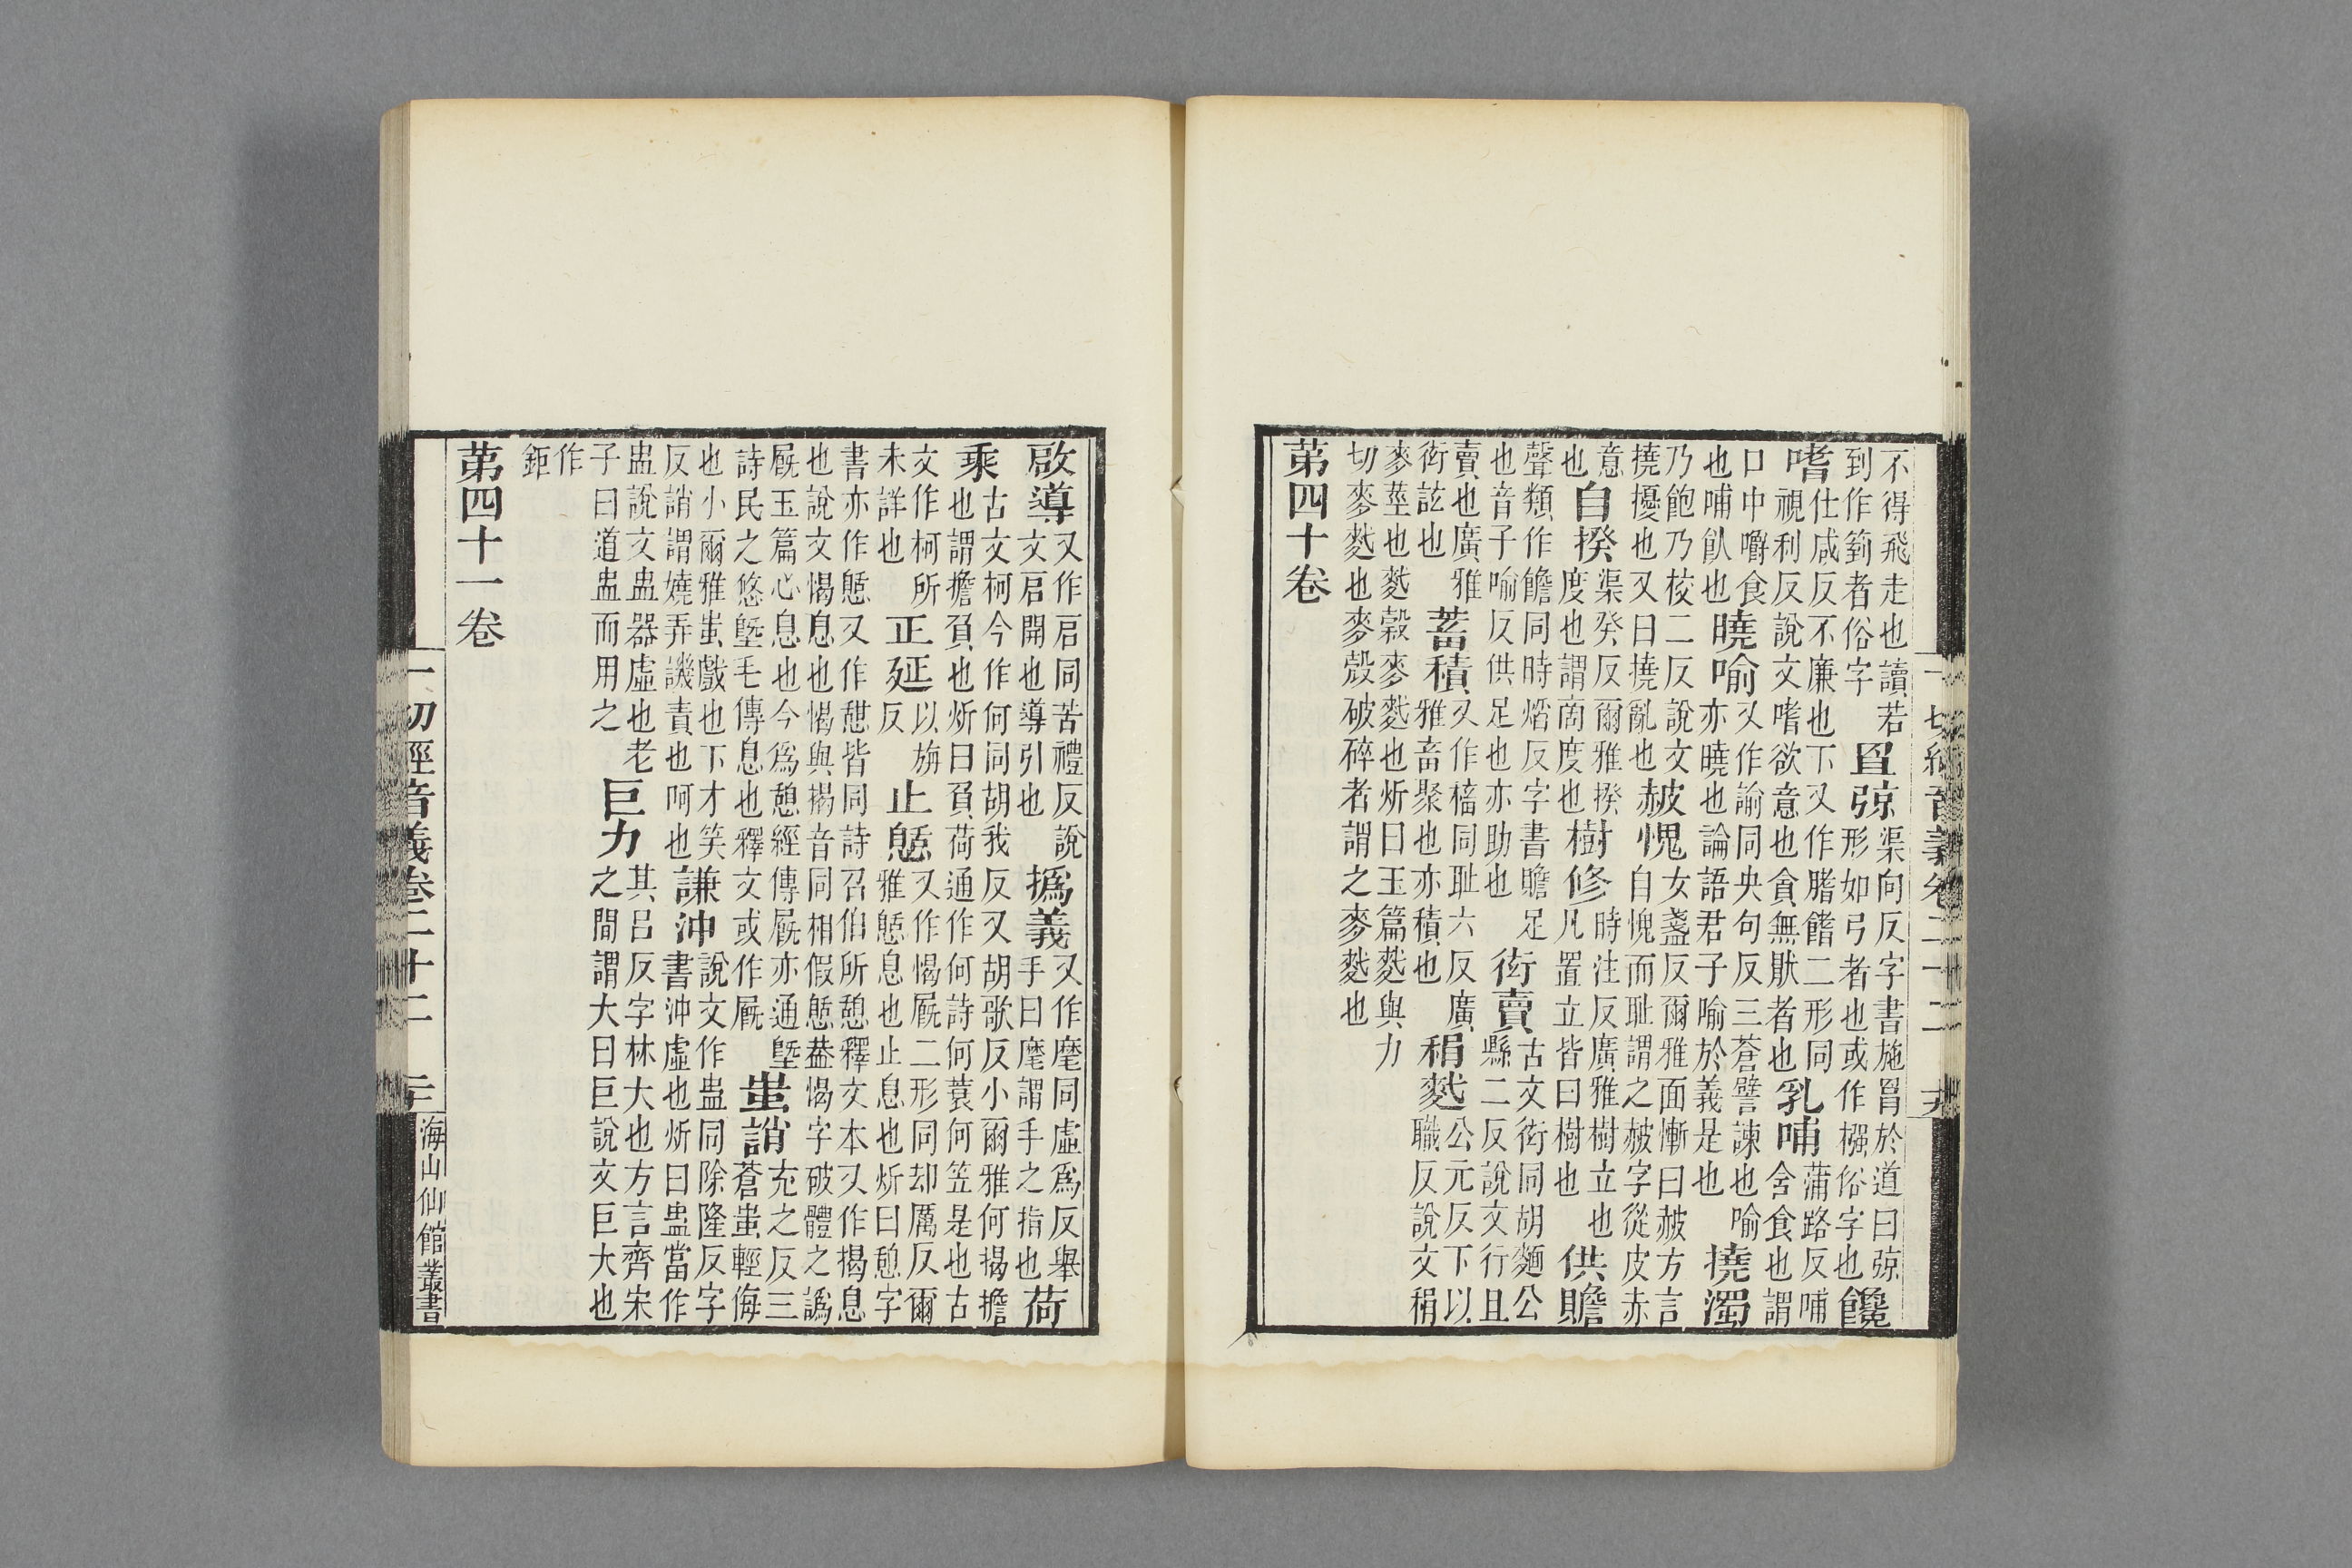 一切經音義卷二十二
不得飛走也讀若到作箌者俗字罝弶渠向反字書施罥於道曰弶形如弓者也或作摾俗字也饞
嗜仕咸反不廉也下又作膡饍二形同視利反說文嗜欲意也貪無猒者也乳哺蒲路反哺含食也謂
口中嚼食也哺飤也曉喻又作諭同央句反三蒼譬諫也喻亦曉也論語君子喻於義是也撓濁
乃飽乃校二反說文撓擾也又曰撓亂也赧愧女盞反爾雅面慚曰赧方言自愧而恥謂之赧字從皮赤
意也自揆渠癸反爾雅揆度也謂商度也樹修時注反廣雅樹立也凡置立皆曰樹也供贍
聲類作饍同時焰反字書贍足也音子喻反供足也亦助也衒賣古文衒同胡麵公縣二反說文行且
賣也廣雅衒詃也蓄積又作稸同恥六反廣雅畜聚也亦積也稍䴬公元反下以職反說文稍
麥莖也䴬榖麥䴬也炘曰玉篇䴬與力切麥䴬也麥榖破碎者謂之麥䴬也
第四十卷
啟導又作启同苦禮反說文启開也導引也撝義又作麾同虛爲反舉手曰麾謂手之指也荷
乘古文柯今作何同胡我反又胡歌反小爾雅何揭擔也謂擔負也炘曰負荷通作何詩何蓑何笠是也古
文作柯所未詳也正延以旃反止憩又作愒厩二形同却厲反爾雅憩息也止息也炘曰憩字
書亦作憇又作甜皆同詩召伯所憩釋文本又作揭息也說文愒息也愒與揭音同相假憩葢愒字破體之譌
厩玉篇心息也今爲憩經傳厩亦通塈詩民之悠塈毛傳息也釋文或作厩蚩誚充之反三蒼蚩輕侮
也小爾雅蚩戲也下才笑反誚謂嬈弄譏責也呵也謙沖說文作盅同除隆反字書沖虛也炘曰盅當作
盅說文盅器虛也老子曰道盅而用之巨力其呂反字林大也方言齊宋之間謂大曰巨說文巨大也
作鉅
第四十一卷
一切經音義卷二十二
海山仙館叢書